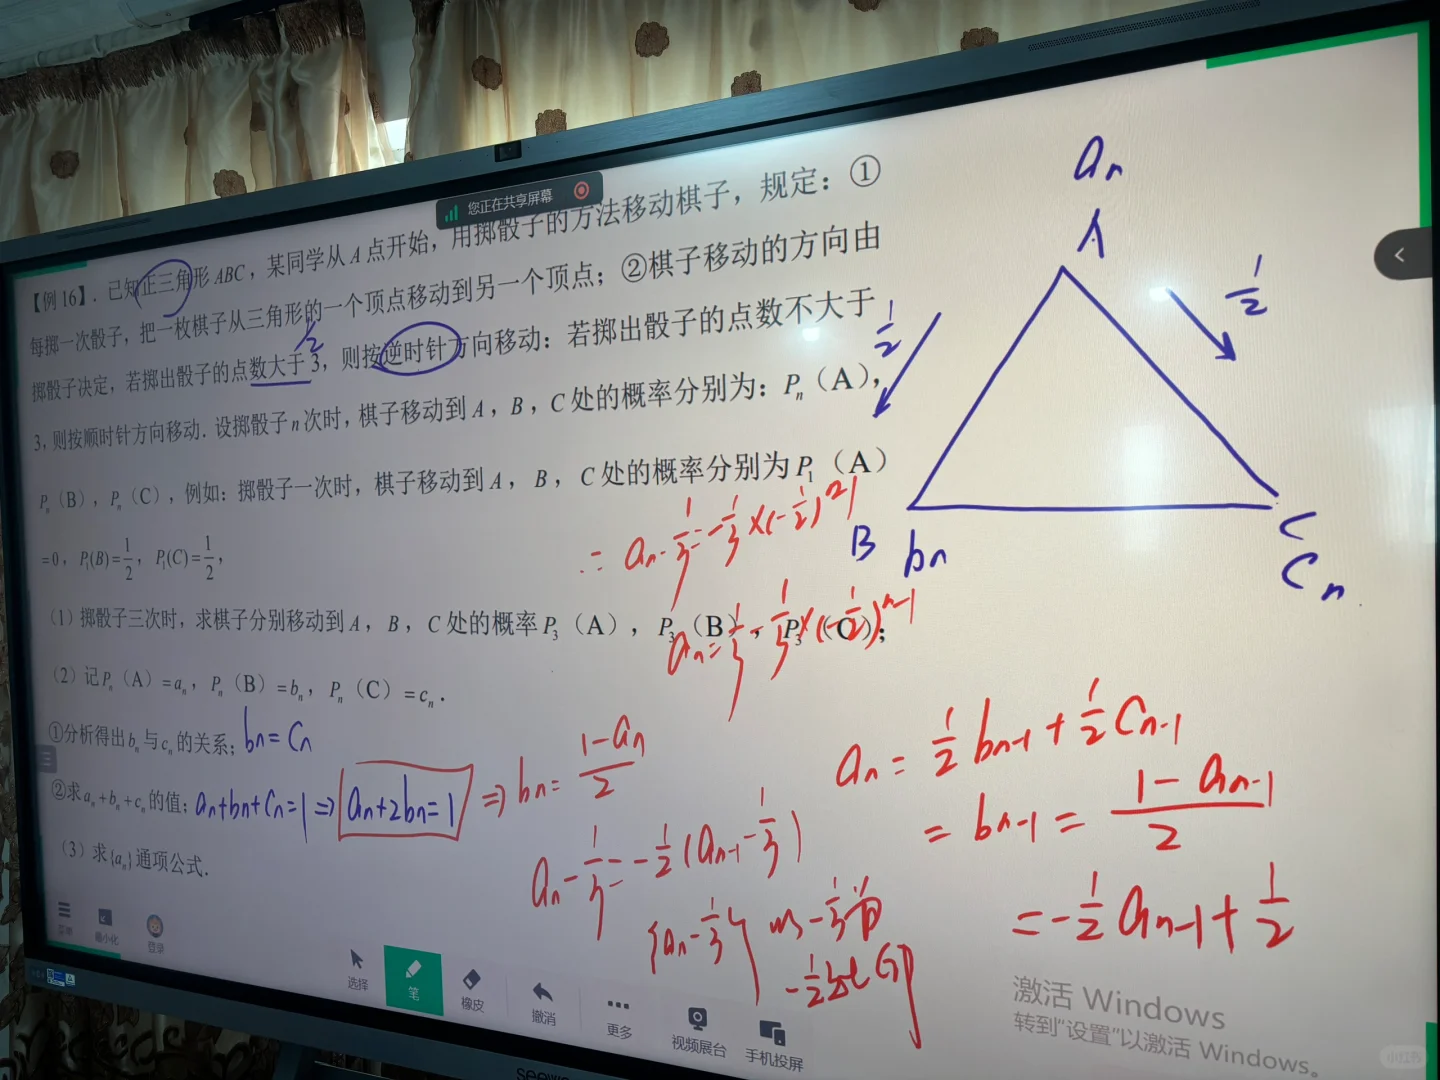 您正在共享屏幕
【例 16】. 已知正三角形 ABC，某同学从 A 点开始，用掷骰子的方法移动棋子，规定：①
每掷一次骰子，把一枚棋子从三角形的一个顶点移动到另一个顶点；②棋子移动的方向由
掷骰子决定，若掷出骰子的点数大于 3，则按逆时针方向移动：若掷出骰子的点数不大于
3，则按顺时针方向移动. 设掷骰子 n 次时，棋子移动到 A，B，C 处的概率分别为：Pₙ（A），
Pₙ（B），Pₙ（C），例如：掷骰子一次时，棋子移动到 A，B，C 处的概率分别为 P₁（A）
=0，P₁(B)=1/2，P₁(C)=1/2，
（1）掷骰子三次时，求棋子分别移动到 A，B，C 处的概率 P₃（A），P₃（B），P₃（C）；
（2）记 Pₙ（A）=aₙ，Pₙ（B）=bₙ，Pₙ（C）=cₙ.
①分析得出 bₙ 与 cₙ 的关系；bₙ=Cₙ
②求 aₙ+bₙ+cₙ 的值；aₙ+bₙ+Cₙ=1 ⇒ aₙ+2bₙ=1 ⇒ bₙ=(1-aₙ)/2
（3）求{aₙ}通项公式.
1/2
aₙ
A
1/2
1/2
B bₙ
C
Cₙ
∴ aₙ-1/3=-1/3×(-1/2)ⁿ⁻¹
aₙ=1/3-1/3×(-1/2)ⁿ⁻¹
aₙ=1/2bₙ₋₁+1/2Cₙ₋₁
=bₙ₋₁=(1-aₙ₋₁)/2
=-1/2aₙ₋₁+1/2
aₙ-1/3=-1/2(aₙ₋₁-1/3)
{aₙ-1/3} 以-1/3为首
-1/2
选择
笔
橡皮
撤消
更多
视频展台
手机投屏
最小化
登录
激活 Windows
转到"设置"以激活 Windows。
seewo
小红书